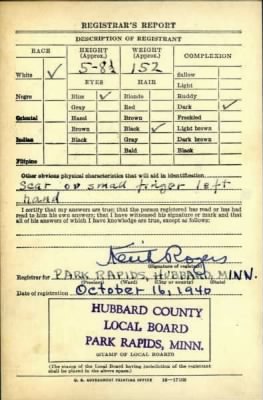 REGISTRAR'S REPORT
DESCRIPTION OF REGISTRANT
RACE HEIGHT (Approx.) WEIGHT (Approx.) COMPLEXION
White ✓ 5-8½ 152 Sallow
EYES HAIR Light
Negro Blue ✓ Blonde Ruddy
Gray Red Dark ✓
Oriental Hazel Brown Freckled
Brown Black ✓ Light brown
Indian Black Gray Dark brown
Bald Black
Filipino
Other obvious physical characteristics that will aid in identification
Scar on small finger left
hand
I certify that my answers are true; that the person registered has read or has had
read to him his own answers; that I have witnessed his signature or mark and that
all of his answers of which I have knowledge are true, except as follows:
Keith Rogers
(Signature of registrar)
Registrar for PARK RAPIDS, HUBBARD, MINN.
(Precinct) (Ward) (City or county) (State)
Date of registration October 16, 1940
HUBBARD COUNTY
LOCAL BOARD
PARK RAPIDS, MINN.
(STAMP OF LOCAL BOARD)
(The stamp of the Local Board having jurisdiction of the registrant
shall be placed in the above space.)
U. S. GOVERNMENT PRINTING OFFICE 16—17105